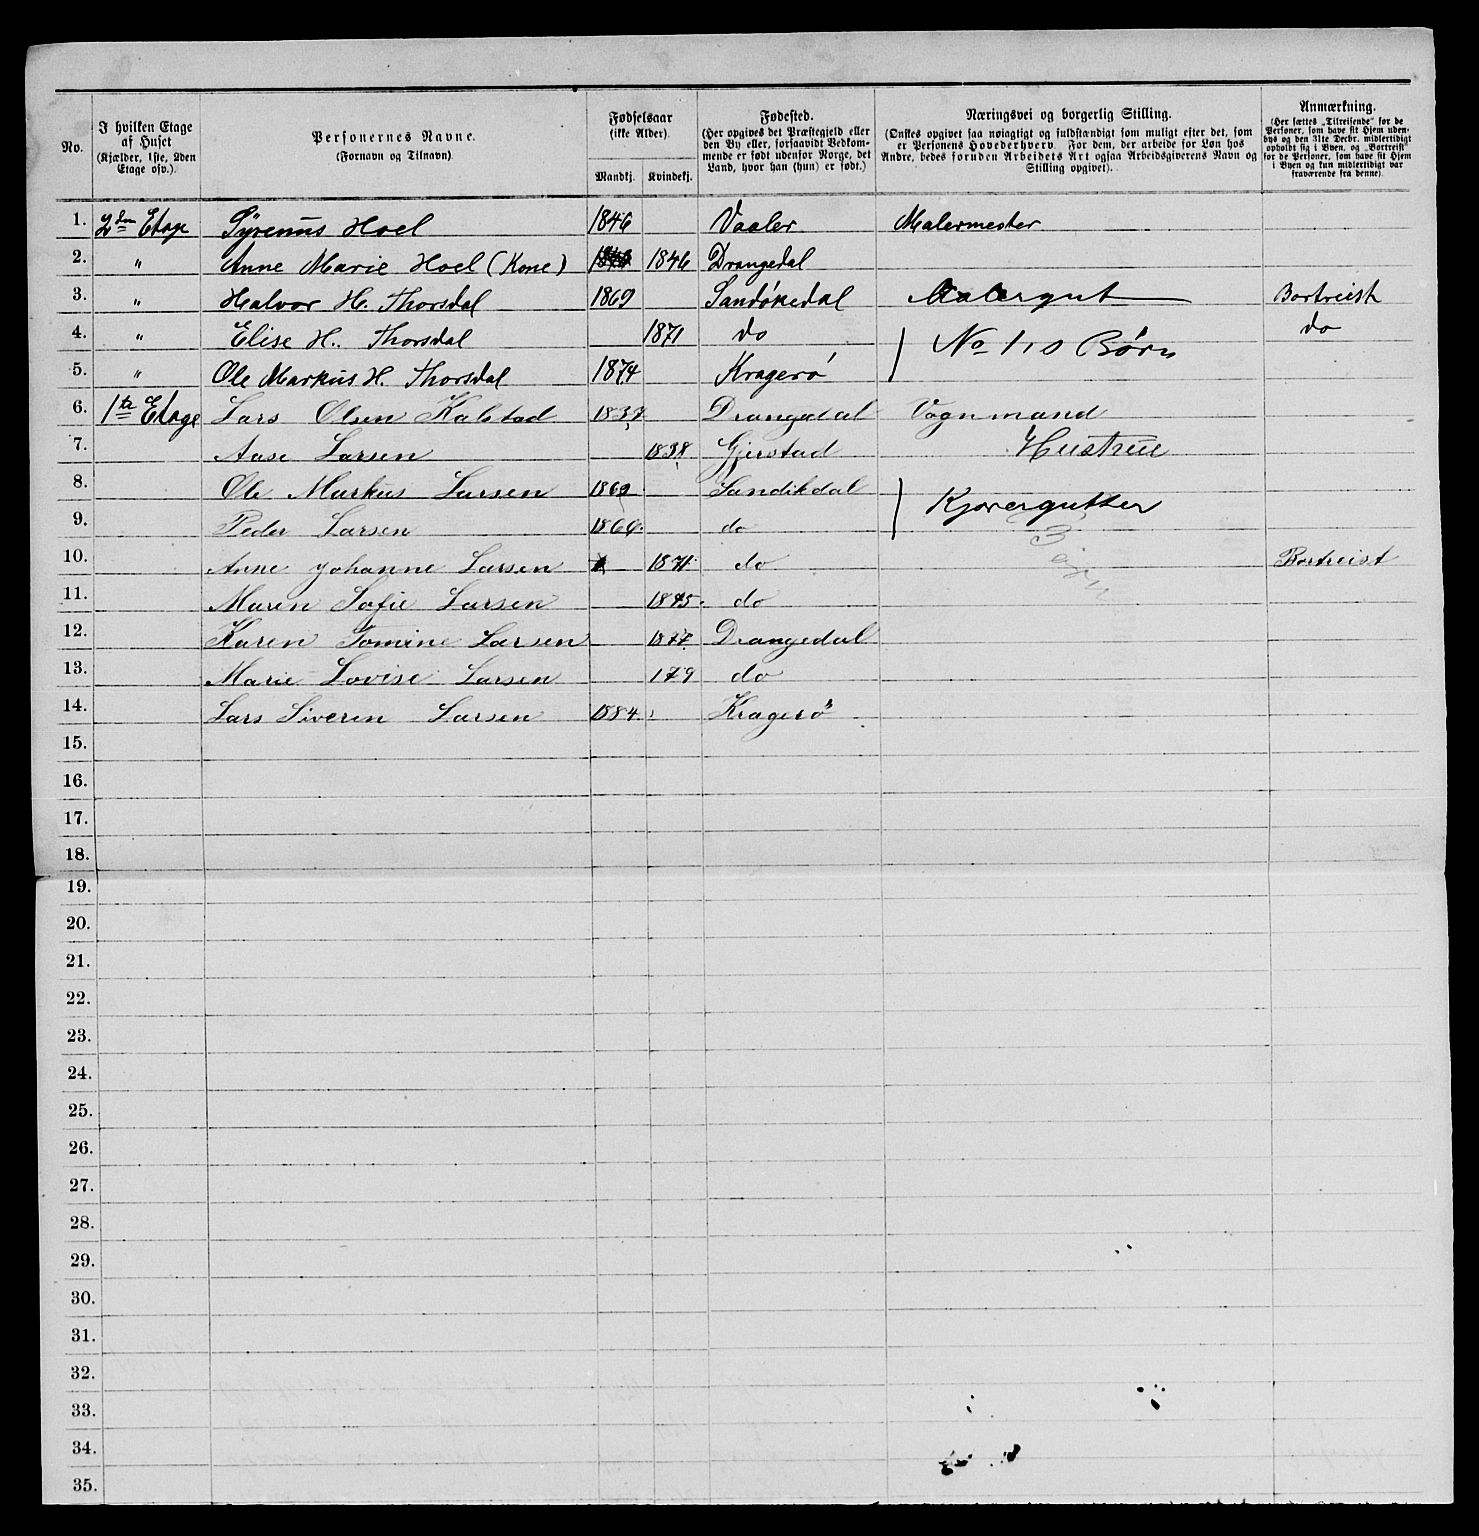 No.
I hvilken Etage af Huset (Kjælder, 1ste, 2den Etage osv.).
Personernes Navne. (Fornavn og Tilnavn).
Fødselsaar (ikke Alder).
Mandkj. Kvindekj.
Fødested. (Her opgives det Præstegjeld eller den By eller, forsaavidt Vedkommende er født udenfor Norge, det Land, hvor han (hun) er født.)
Næringsvei og borgerlig Stilling. (Ønskes opgivet saa nøiagtigt og fuldstændigt som muligt efter det, som er Personens Hovederhverv. For dem, der arbeide for Løn hos Andre, bedes foruden Arbeidets Art ogsaa Arbeidsgiverens Navn og Stilling opgivet).
Anmærkning. (Her sættes „Tilreisende" for de Personer, som have sit Hjem udenbys og den 31te Decbr. midlertidigt opholdt sig i Byen, og „Bortreist" for de Personer, som have sit Hjem i Byen og kun midlertidigt var fraværende fra denne).
1. 2den Etage Syrenus Hoel 1846 Vaaler Malermester
2. " Anne Marie Hoel (Kone) 1846 Drangedal
3. " Halvor H. Thorsdal 1869 Sandøkedal Malergut Bortreist
4. " Elise H. Thorsdal 1871 do No 1,0 Børn do
5. " Ole Markus H. Thorsdal 1874 Kragerø
6. 1te Etage Lars Olsen Kalstad 1837 Drangedal Vognmand
7. Aase Larsen 1838 Gjerstad Hustrue
8. Ole Markus Larsen 1862 Sandikdal Kjørergutter
9. Peder Larsen 1866 do
10. Anne Johanne Larsen 1871 do Bortreist
11. Maren Sofie Larsen 1875 do
12. Karen Tomine Larsen 1877 Drangedal
13. Marie Lovise Larsen 179 do
14. Lars Siverin Larsen 1884 Kragerø
15.
16.
17.
18.
19.
20.
21.
22.
23.
24.
25.
26.
27.
28.
29.
30.
31.
32.
33.
34.
35.